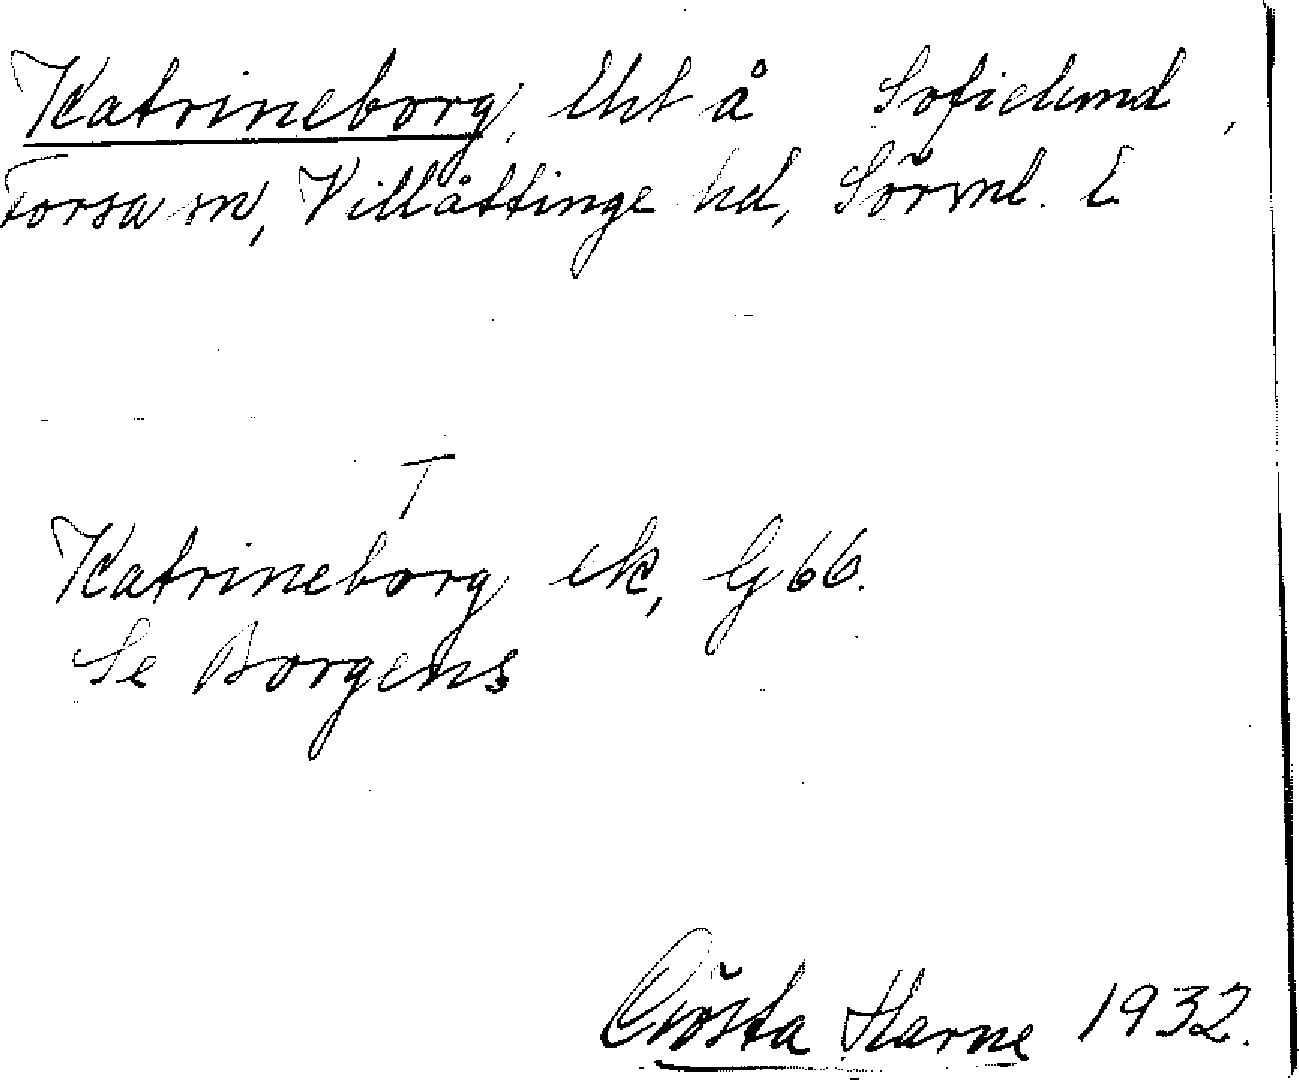 Katrineborg, lht å Sofielund,
Forsa sn, Villåttinge hd, Sörml. L
T
Katrineborg ek, G 66.
Se Borgens
Gösta Harne 1932.